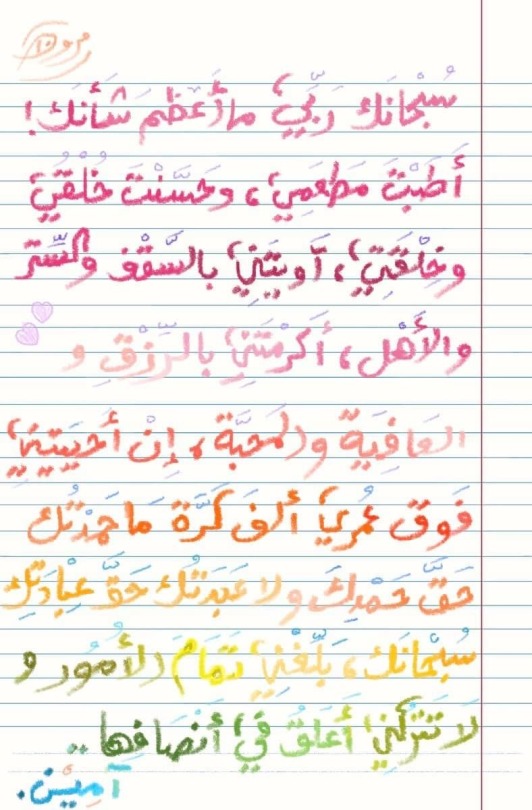 سُبْحَانَك رَبِّي، ما أَعْظَمَ شَأنَك!
أَطَبْتَ مَطعَمِي، وحَسَّنْتَ خُلُقي
وخِلْقَتِي، آويتَنِي بالسَّقْف والسِّتر
والأهْل، أَكرَمْتَنِي بالرِّزْقِ و
العَافِيَة والمَحبَّة، إنْ أحيَيتِنِي
فَوق عُمرِي ألفَ كَرَّة مَا حَمِدْتُك
حَقَّ حَمْدِكَ ولا عَبَدتُك حَقَّ عِبَادَتِك
سُبْحَانَك، بَلِّغْنِي تَمَامَ الأمُور و
لَا تَترُكنِي أَعلَقُ فِي أَنْصَافِها..
آميْن.